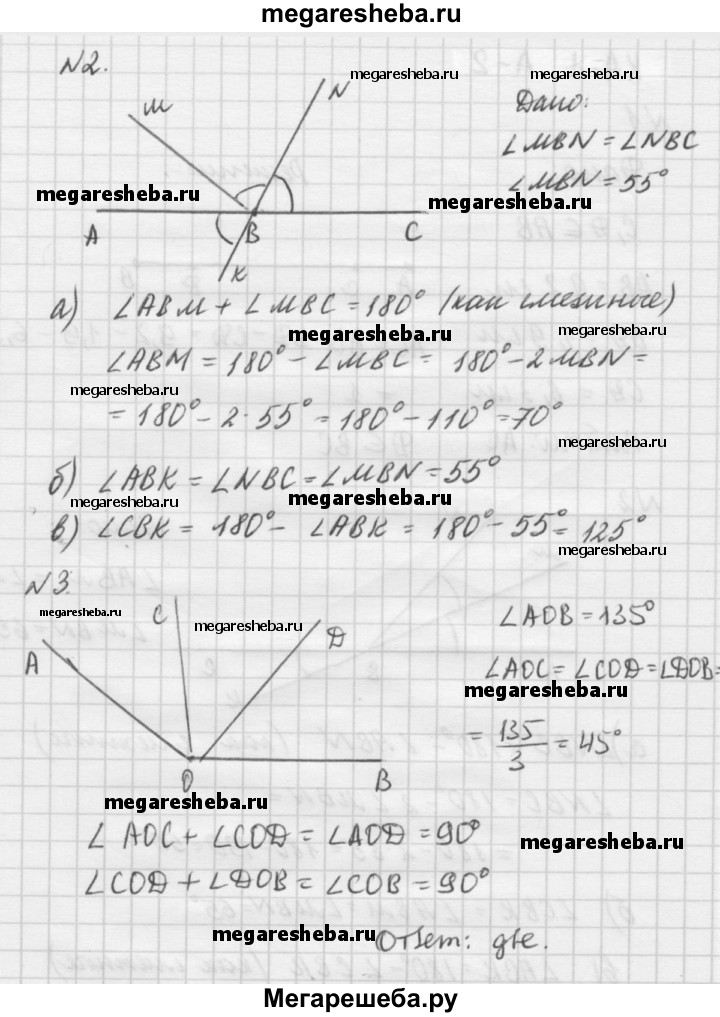 megaresheba.ru
№2.
M
N
A
B
C
K
megaresheba.ru
megaresheba.ru
megaresheba.ru
megaresheba.ru
Дано:
∠MBN = ∠NBC
∠MBN = 55°
а) ∠ABM + ∠MBC = 180° (как смежные)
megaresheba.ru
megaresheba.ru
∠ABM = 180° - ∠MBC = 180° - 2MBN =
megaresheba.ru
= 180° - 2·55° = 180° - 110° = 70°
megaresheba.ru
б) ∠ABK = ∠NBC = ∠MBN = 55°
megaresheba.ru
megaresheba.ru
в) ∠CBK = 180° - ∠ABK = 180° - 55° = 125°
megaresheba.ru
№3.
megaresheba.ru
megaresheba.ru
A
C
D
O
B
∠AOB = 135°
∠AOC = ∠COD = ∠DOB =
megaresheba.ru
= 135/3 = 45°
megaresheba.ru
∠AOC + ∠COD = ∠AOD = 90°
megaresheba.ru
∠COD + ∠DOB = ∠COB = 90°
megaresheba.ru
Ответ: две.
Мегарешеба.ру